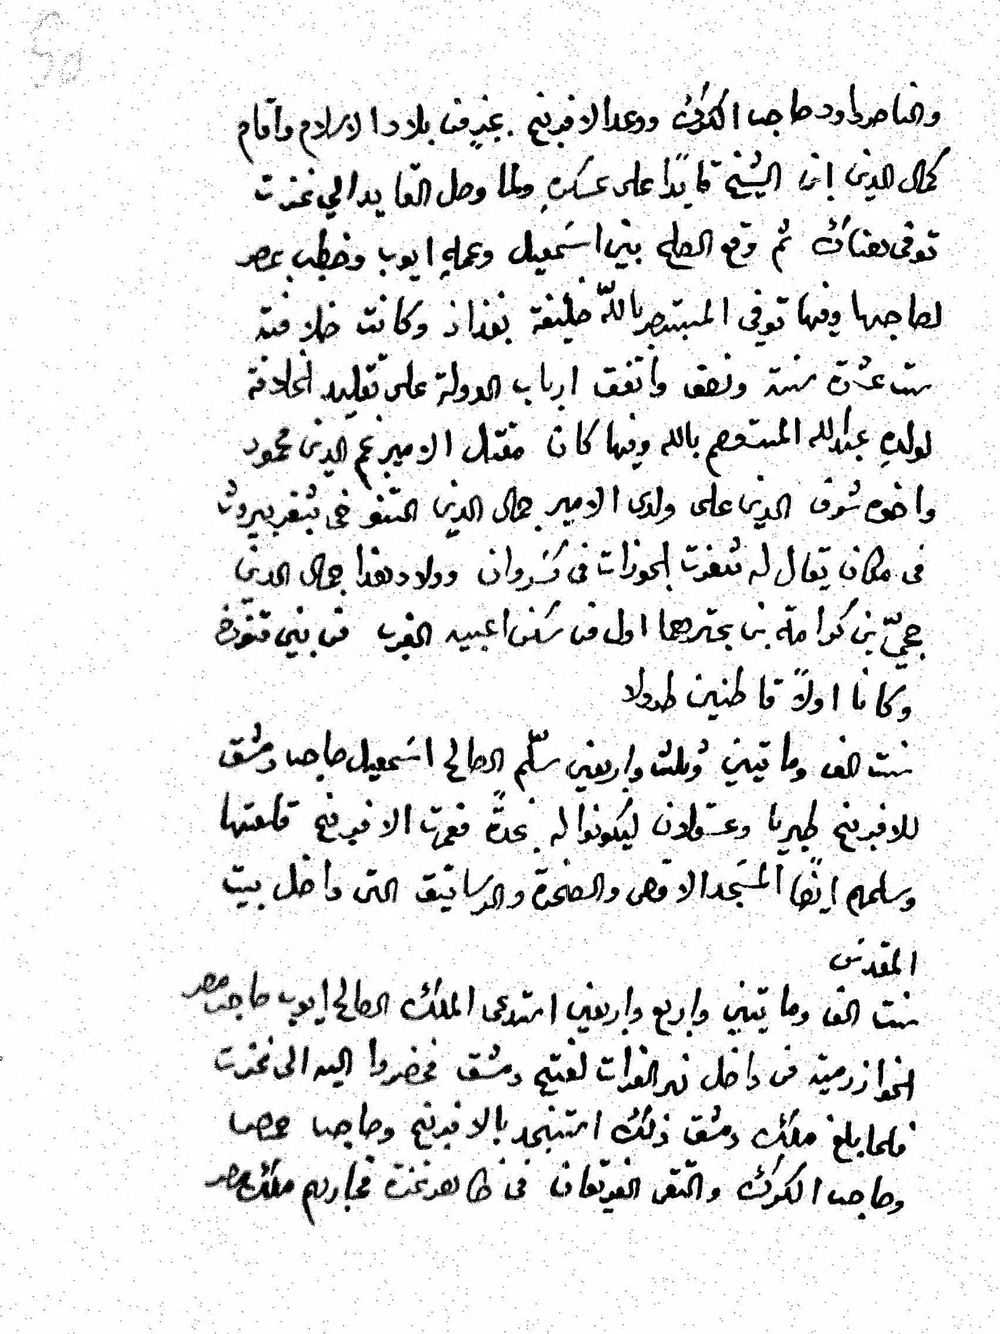 والناصر داود صاحب الكرك ووعد الافرنج بجزء من بلاد الاسلام واقام
كمال الدين ابن الشيخ قايدًا على عسكره ولما وصل القايد الي غزت
توفى هناك ثم وقع الصلح بين اسمعيل وعمه ايوب وخطب بمصر
لصاحبها وفيها توفي المستنصر بالله خليفة بغداد وكانت خلافته
ست عشرة سنة ونصف واتفق ارباب الدولة على تقليد الخلافة
لولده عبدالله المستعصم بالله وفيها كان مقتل الامير نجم الدين محمود
واخوه شرف الدين على ولدى الامير جمال الدين التنوخى بثغر بيروت
فى مكان يقال له ثغرت الجوزات فى كسروان وولاد هذا جمال الدين
حجيّ بن كرامة بن بحتر هما اول من سكن اعبيه الغرب من بني تنوخ
وكانا اولاً قاطنين طردلا
سنت الف وماتيني وثلث واربعين سلّم الصالح اسمعيل صاحب دمشق
للافرنج طبريا وعسقلان ليكونوا له نجدةً فعمرت الافرنج قلعتها
وسلمهم ايضًا المسجد الاقصى والصخرة والرساتيق التى داخل بيت
المقدس
سنت الف وماتيني واربع واربعين استدعى الملك الصالح ايوب صاحب مصر
الخوازرمية من داخل نهر الفرات لفتيح دمشق فحضروا اليه الى غزت
فلما بلغ ملك دمشق ذلك استنجد بالافرنج وصاحب حمص
وصاحب الكرك والتقى الفريقان فى ظاهر غزة فحاربهم ملك مصر